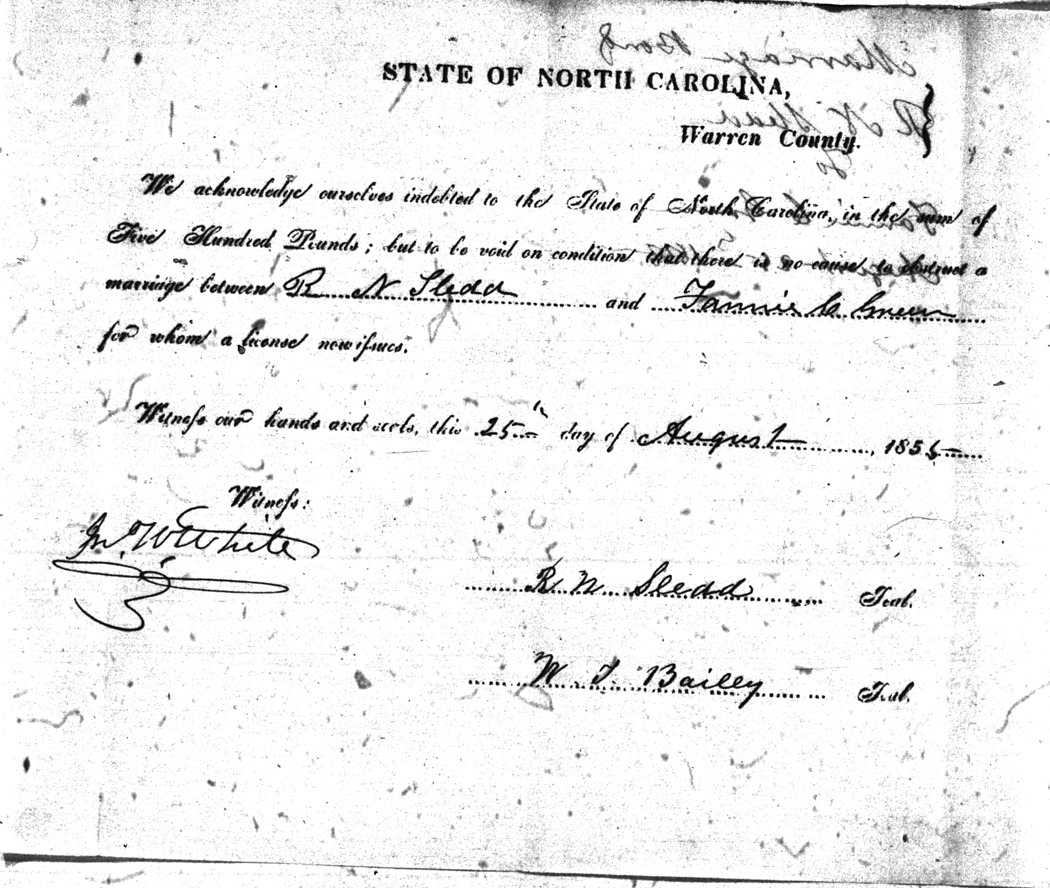 Marriage Bond
STATE OF NORTH CAROLINA,
R N Sledd
Warren County.
to
We acknowledge ourselves indebted to the State of North Carolina, in the sum of
Five Hundred Pounds; but to be void on condition that there is no cause to obstruct a
marriage between R N Sledd and Fannie C Green
for whom a license now issues.
Witness our hands and seals, this 25th day of August, 1855
Witness:
Jno W White
R N Sledd Seal.
W. T. Bailey Seal.